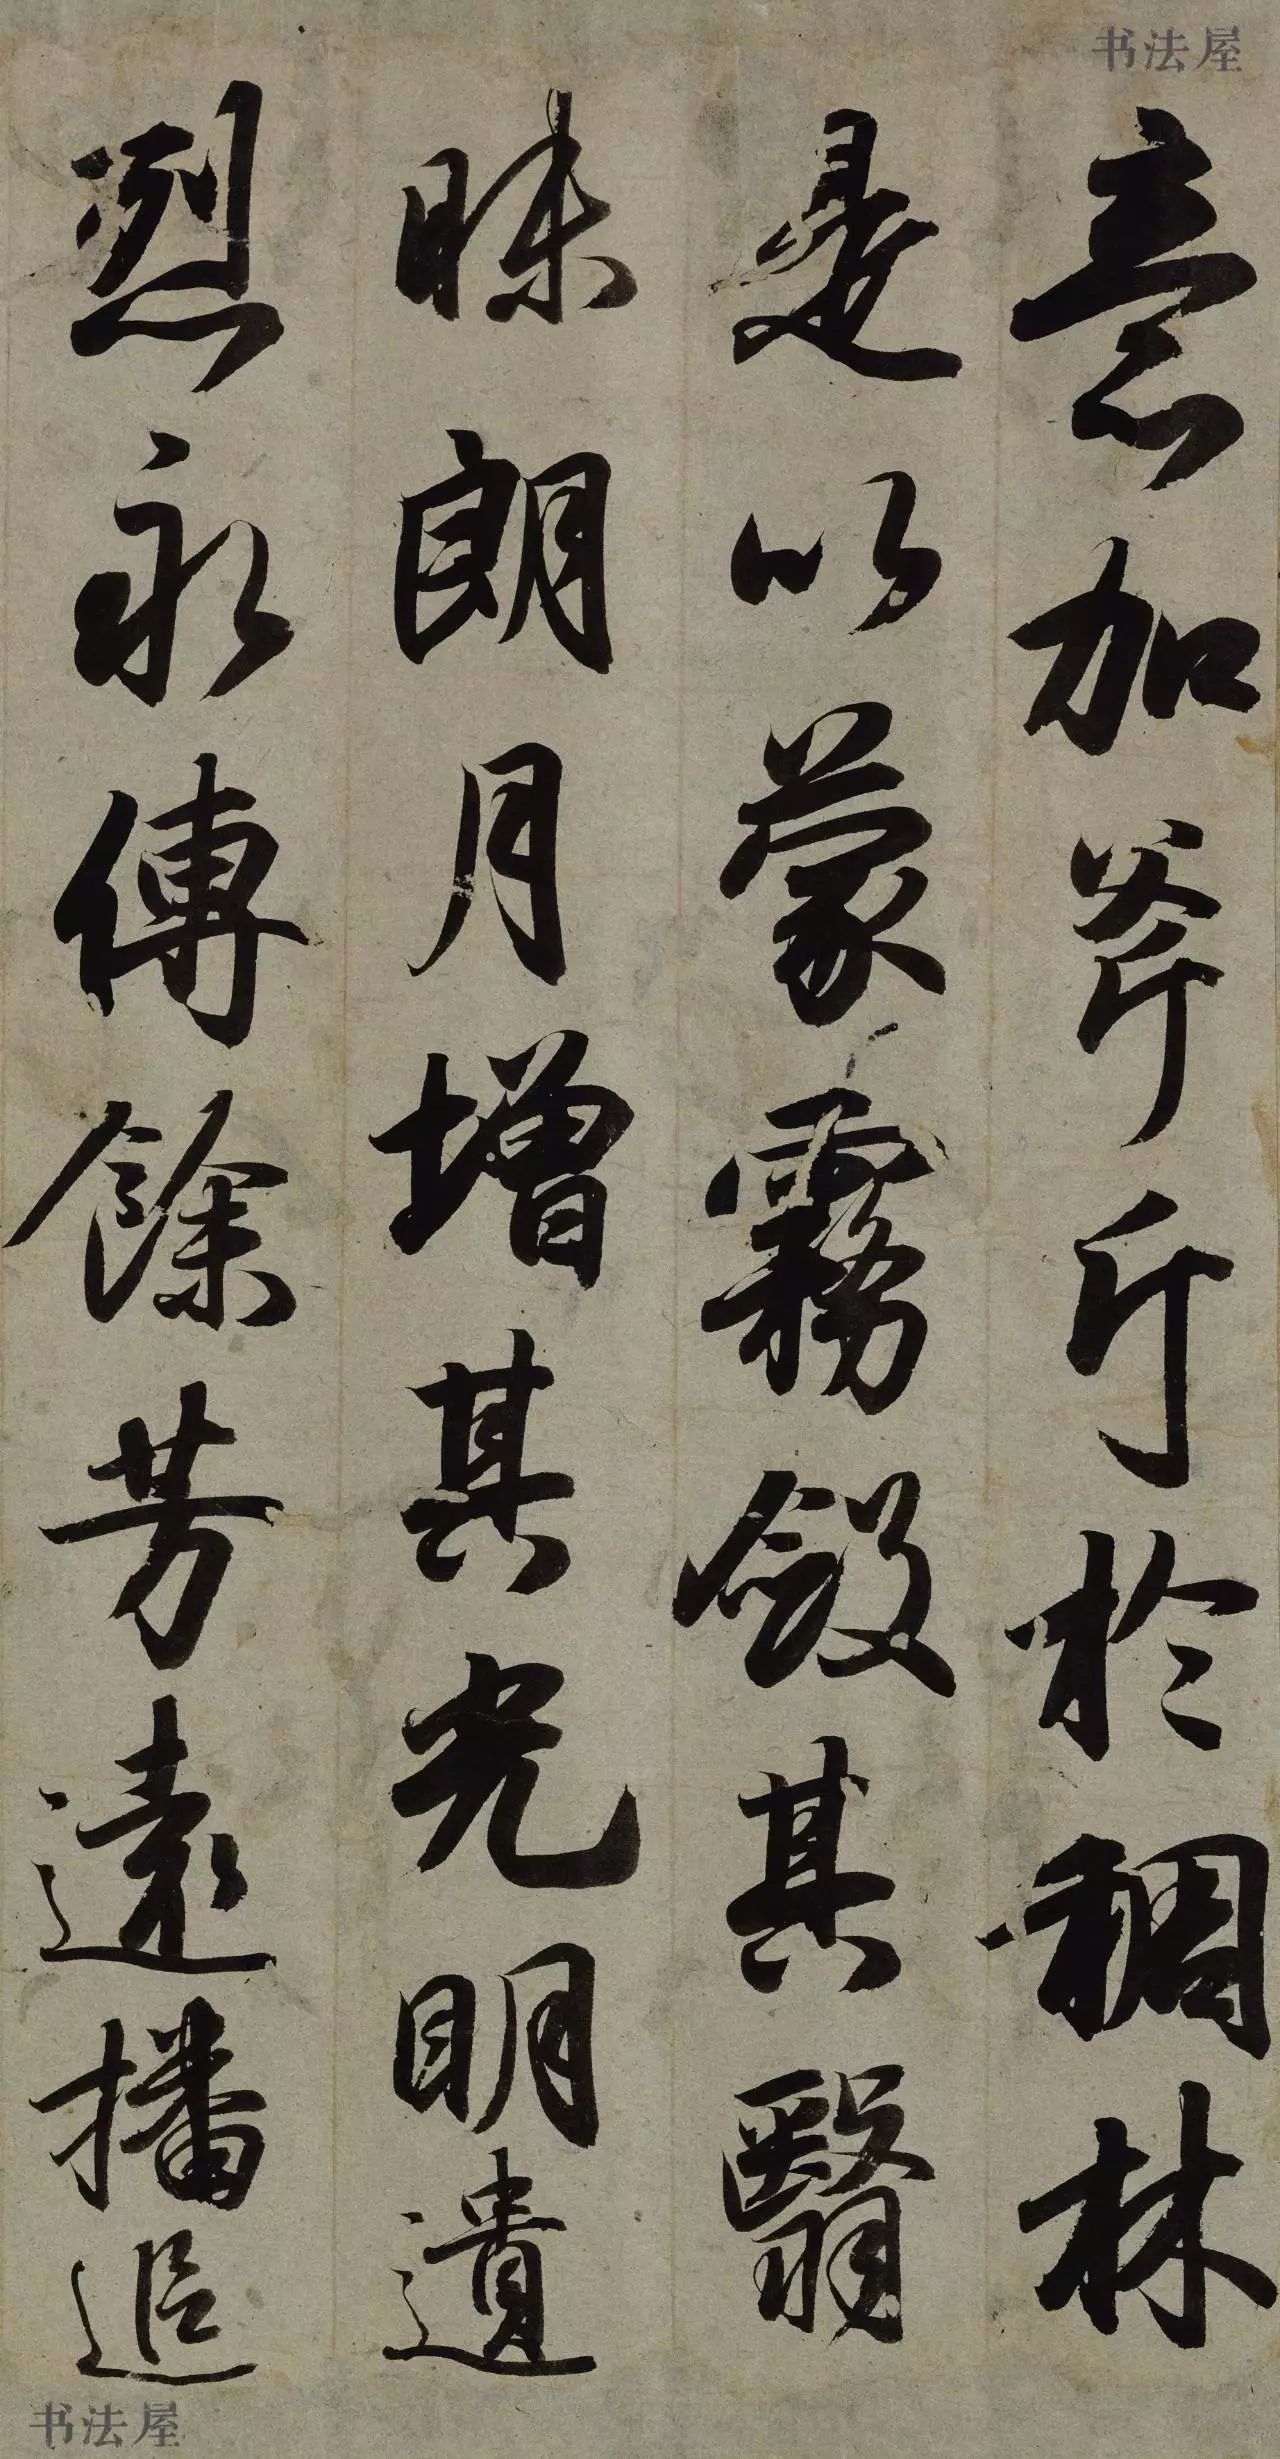 书法屋
意加斧斤於稠林
是以蒙霧斂其翳
昧朗月增其光明遺
烈永傳餘芳遠播追
书法屋